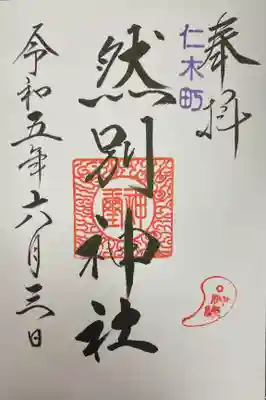 奉拝
仁木町
然別神社
令和五年六月三日